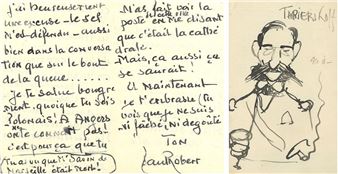 j'ai heureusement
une excuse - le sel
m'est défendu - aussi
bien dans la conversa
tion que sur le bout
de la queue
Je te salue bougre
ment, quoique tu sois
Polonais! A ANGERS
on te connait pas!
c'est pourça que tu
Marseille était mort!
M'as fait voir la
poste en me disant
que c'était la cathé
drale.
Mais, ça aussi ça
se saurait!
Et Maintenant
je t'embrasse, tu
vois que je ne suis
ni fâché, ni dégouté
TON
Robert